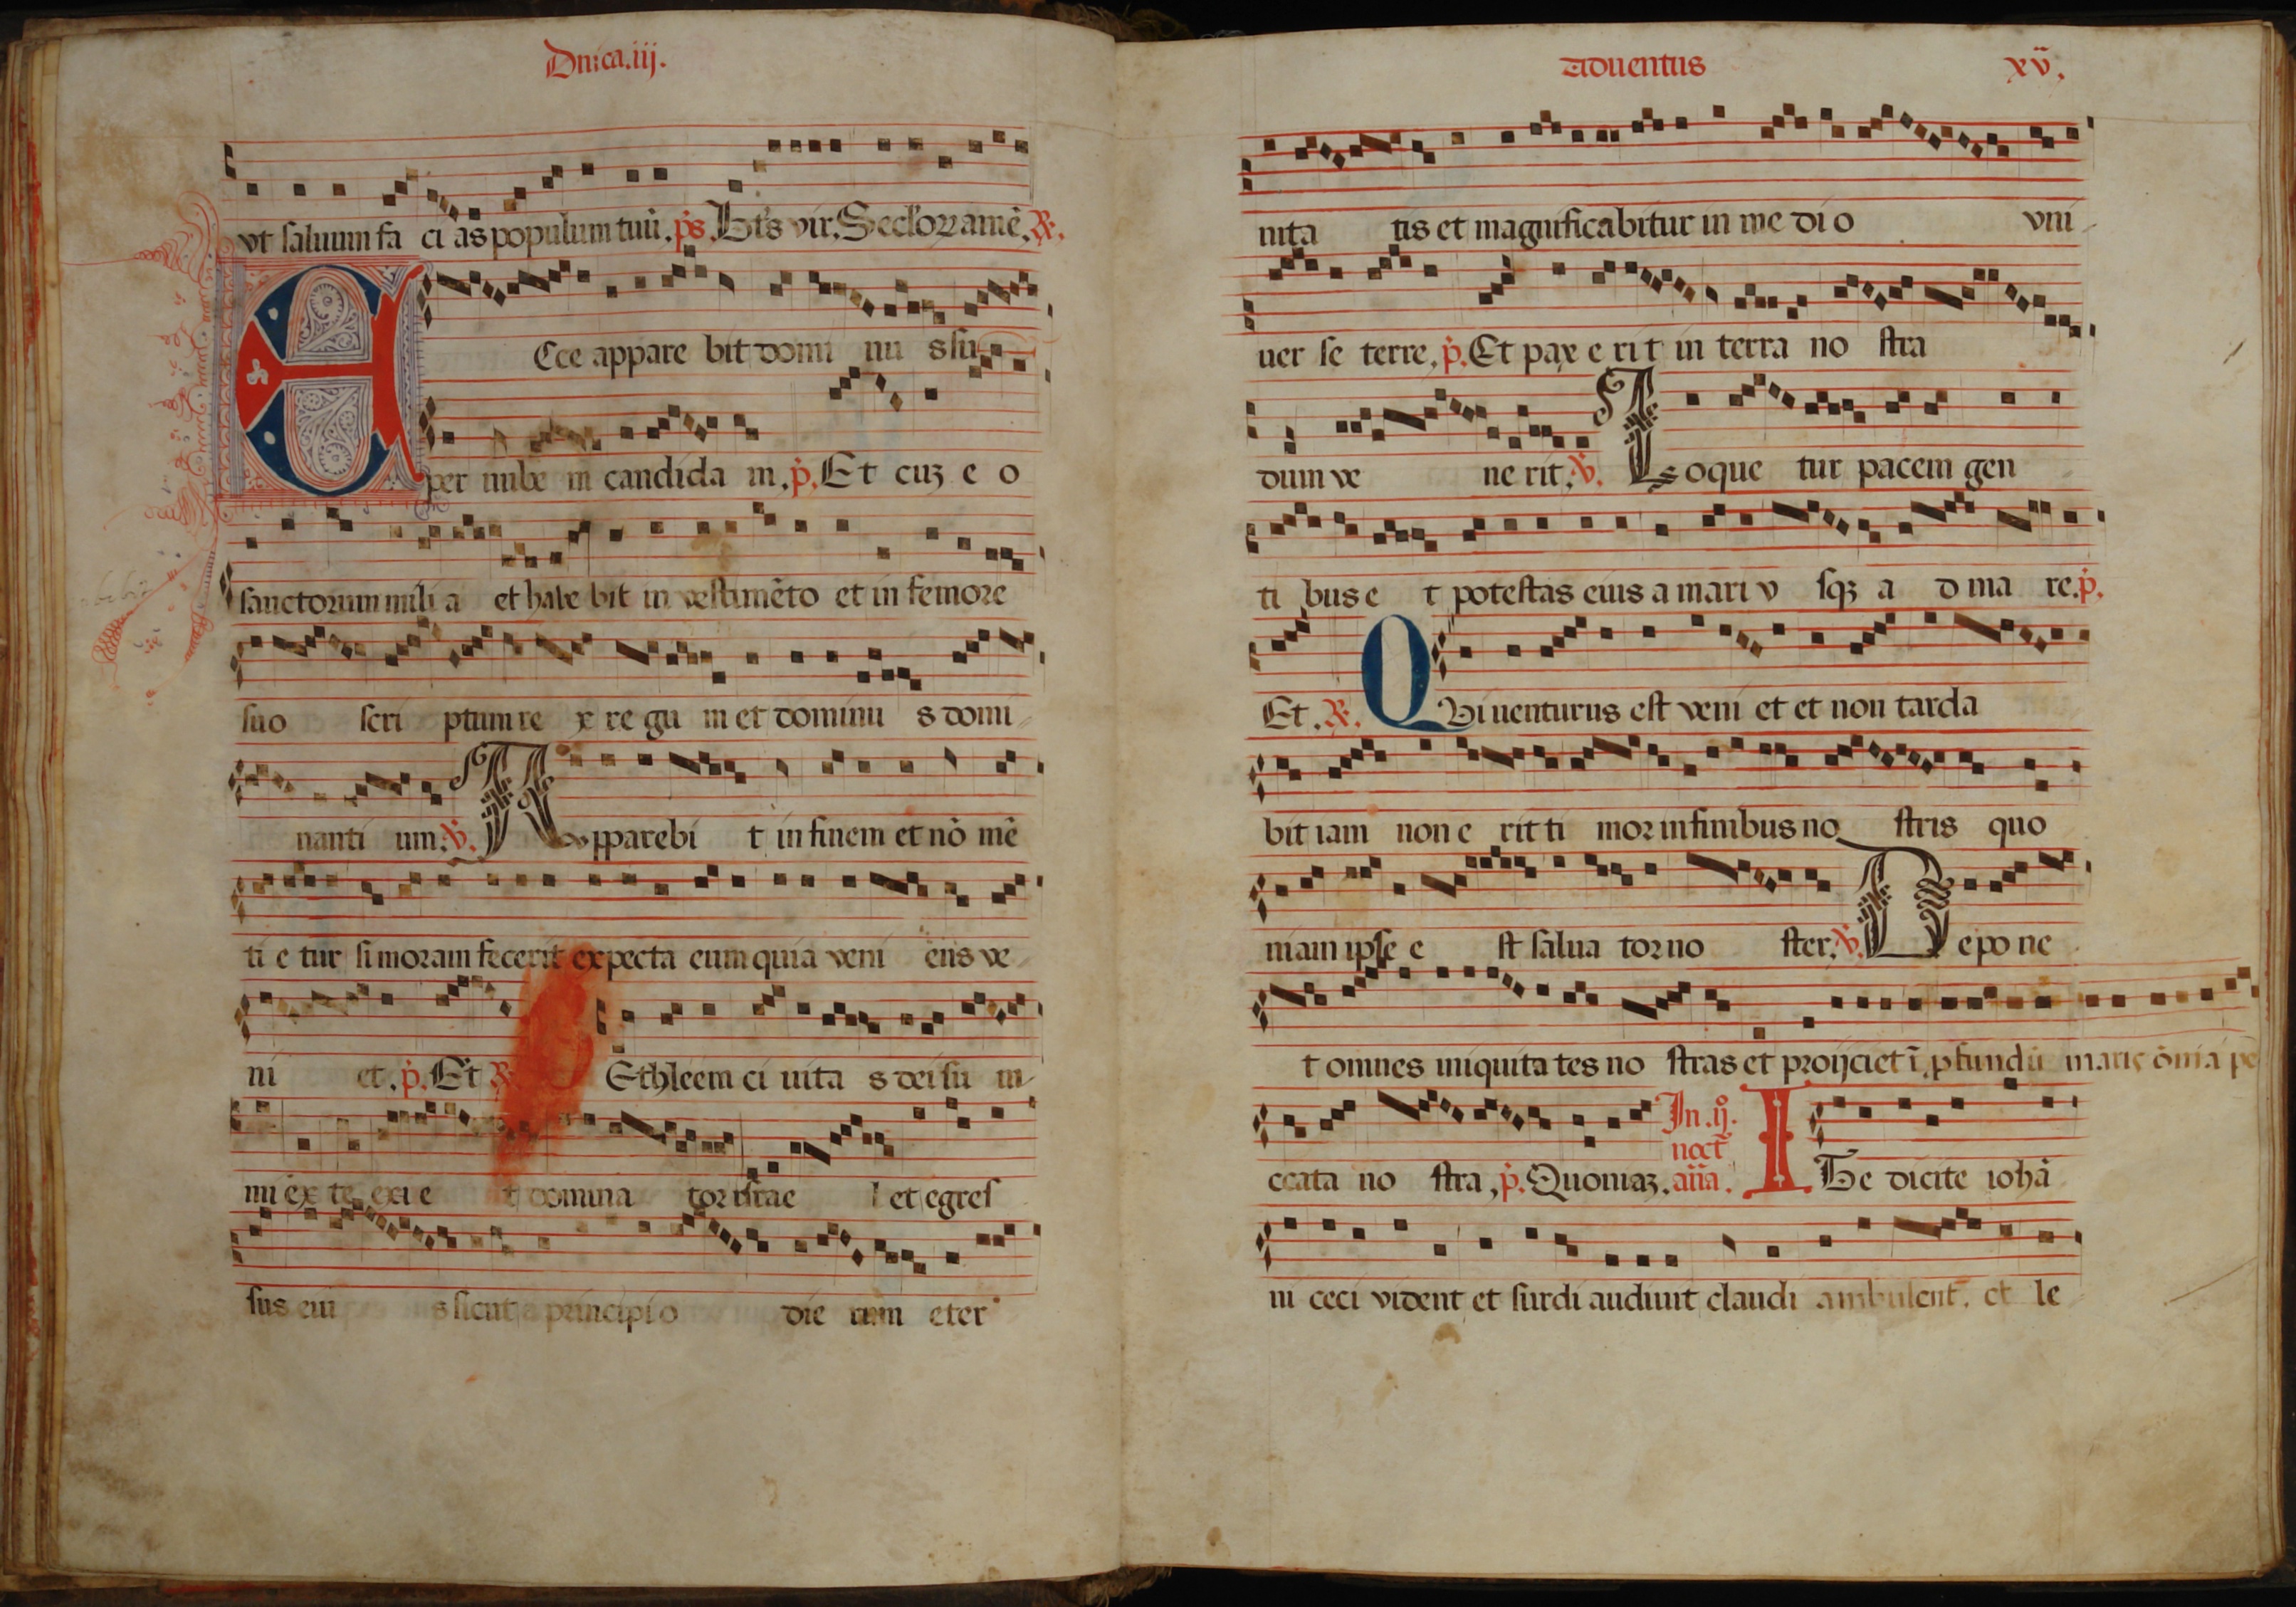 Dnica.iij.
vt saluum fa ci as populum tuū. p̄s. Bt̄s vir. Secl'oꝝ amē. ℟.
Ecce appare bit domi nu s su
per nube m candida m. p̄. Et cuꝫ e o
sanctorum mili a et habe bit in vestimēto et in femore
suo scri ptum re x re gu m et dominu s domi-
nanti um. ℣. Apparebi t in finem et nō mē
ti e tur si moram fecerit expecta eum quia veni ens ve
ni et. p̄. Et ℟. Ethleem ci uita s dei su m-
mi ex te exi e t domina tor israe l et egres
sus eiu s sicut a principi o die rum eter
Aduentus xv.
nita tis et magnificabitur in me di o vni-
uer se terre. p̄. Et pax e ri t in terra no stra
dum ve ne rit. ℣. Loque tur pacem gen
ti bus e t potestas eius a mari v sqꝫ a d ma re. p̄.
Et. ℟. Qui uenturus est veni et et non tarda
bit iam non e rit ti mor in finibus no stris quo
niam ipse e st salua tor no ster. ℣. Depo ne
t omnes iniquita tes no stras et proijciet ī pfundū maris ōnia pe
ccata no stra. p̄. Quoniaꝫ. In .ij. noct̄ an̄a. Ite dicite iohā
ni ceci vident et surdi audiunt claudi ambulent. et le